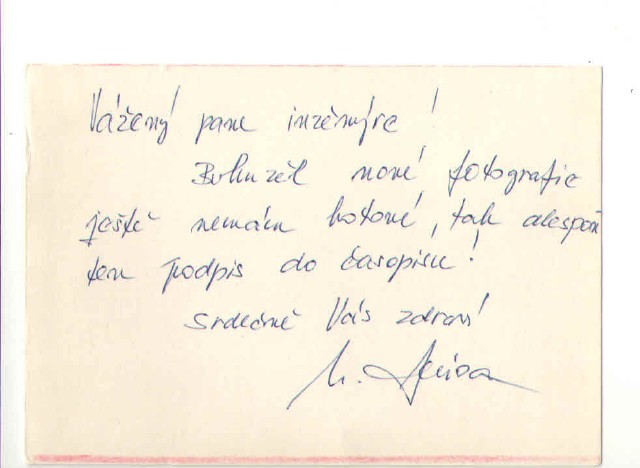 Vážený pane inženýre !
Bohužel nové fotografie
ještě nemám hotové, tak alespoň
ten podpis do časopisu !
Srdečně Vás zdraví